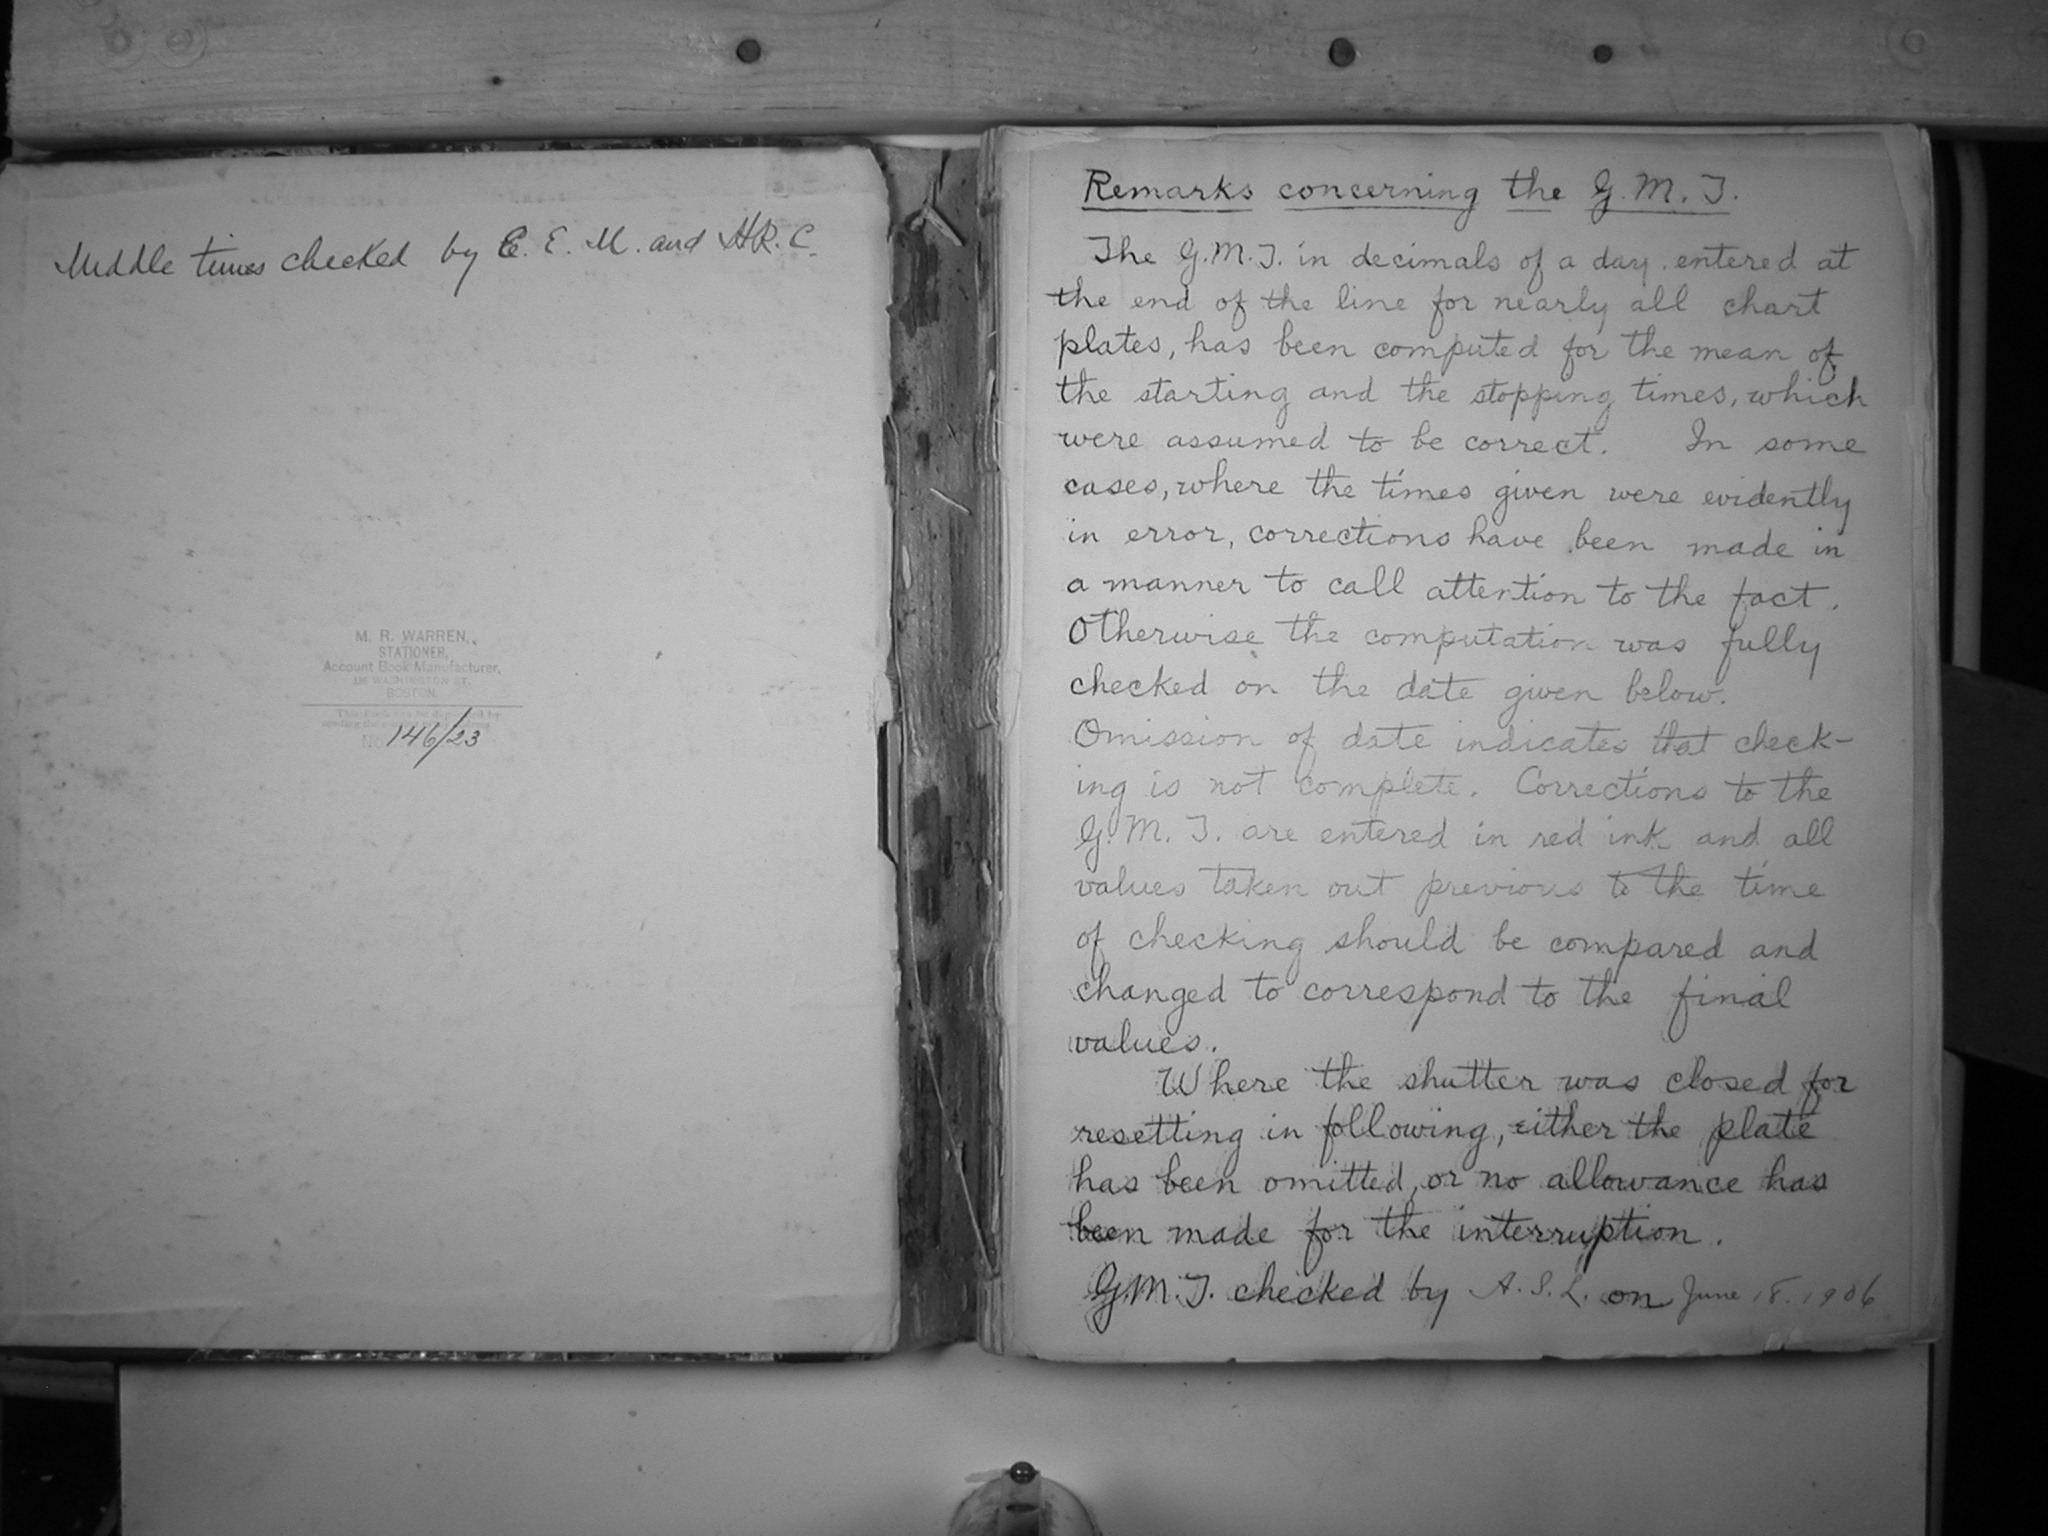 Middle times checked by E. E. M. and H.R.C.
M. R. WARREN,
STATIONER,
Account Book Manufacturer,
WASHINGTON ST.
BOSTON.
No 146/23
Remarks concerning the G.M.T.
The G.M.T. in decimals of a day entered at
the end of the line for nearly all chart
plates, has been computed for the mean of
the starting and the stopping times, which
were assumed to be correct. In some
cases, where the times given were evidently
in error, corrections have been made in
a manner to call attention to the fact.
Otherwise the computation was fully
checked on the date given below.
Omission of date indicates that check-
ing is not complete. Corrections to the
G.M.T. are entered in red ink and all
values taken out previous to the time
of checking should be compared and
changed to correspond to the final
values.
Where the shutter was closed for
resetting in following, either the plate
has been omitted, or no allowance has
been made for the interruption.
G.M.T. checked by A.S.L. on June 18. 1906